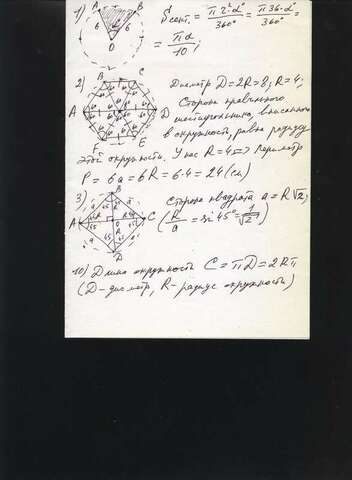 1) A B 6 6 O Sсект. = π r²·α°/360° = π 36·α°/360° =
= πα/10;
2) B C A D F E Диаметр D=2R=8; R=4;
Сторона правильного
шестиугольника, вписанного
в окружность, равна радиусу
этой окружности. У нас R=4 => Периметр
P = 6a = 6R = 6·4 = 24 (см)
3) B A C D O R 45 a Сторона квадрата a = R√2;
(R/a = sin 45° = 1/√2)
10) Длина окружность C = πD = 2Rπ
(D - диаметр, R - радиус окружность)